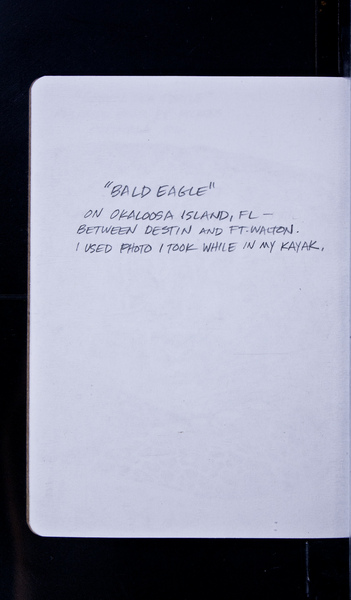 "BALD EAGLE"
ON OKALOOSA ISLAND, FL —
BETWEEN DESTIN AND FT. WALTON.
I USED PHOTO I TOOK WHILE IN MY KAYAK.